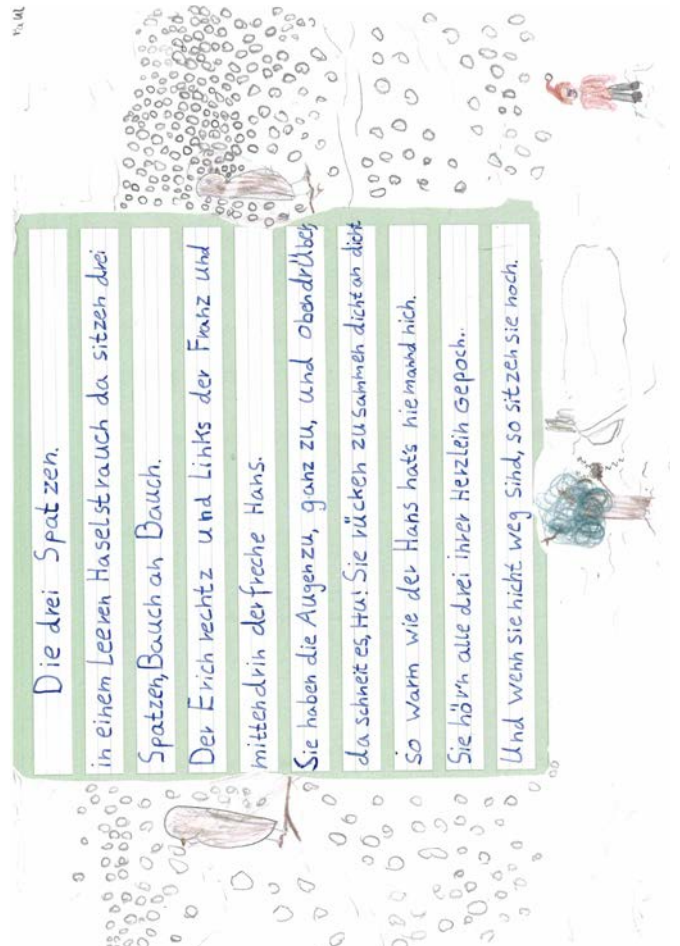 Die drei Spatzen.
in einem Leeren Haselstrauch da sitzen drei
Spatzen, Bauch an Bauch.
Der Erich rechtz und Links der Franz und
mittendrin der freche Hans.
Sie haben die Augen zu, ganz zu, und obendrüber
da schneit es, Hu! Sie rücken zusammen dicht an dicht
so warm wie der Hans hat's niemand nich.
Sie hör'n alle drei ihrer Herzlein Gepoch.
Und wenn sie nicht weg sind, so sitzen sie noch.